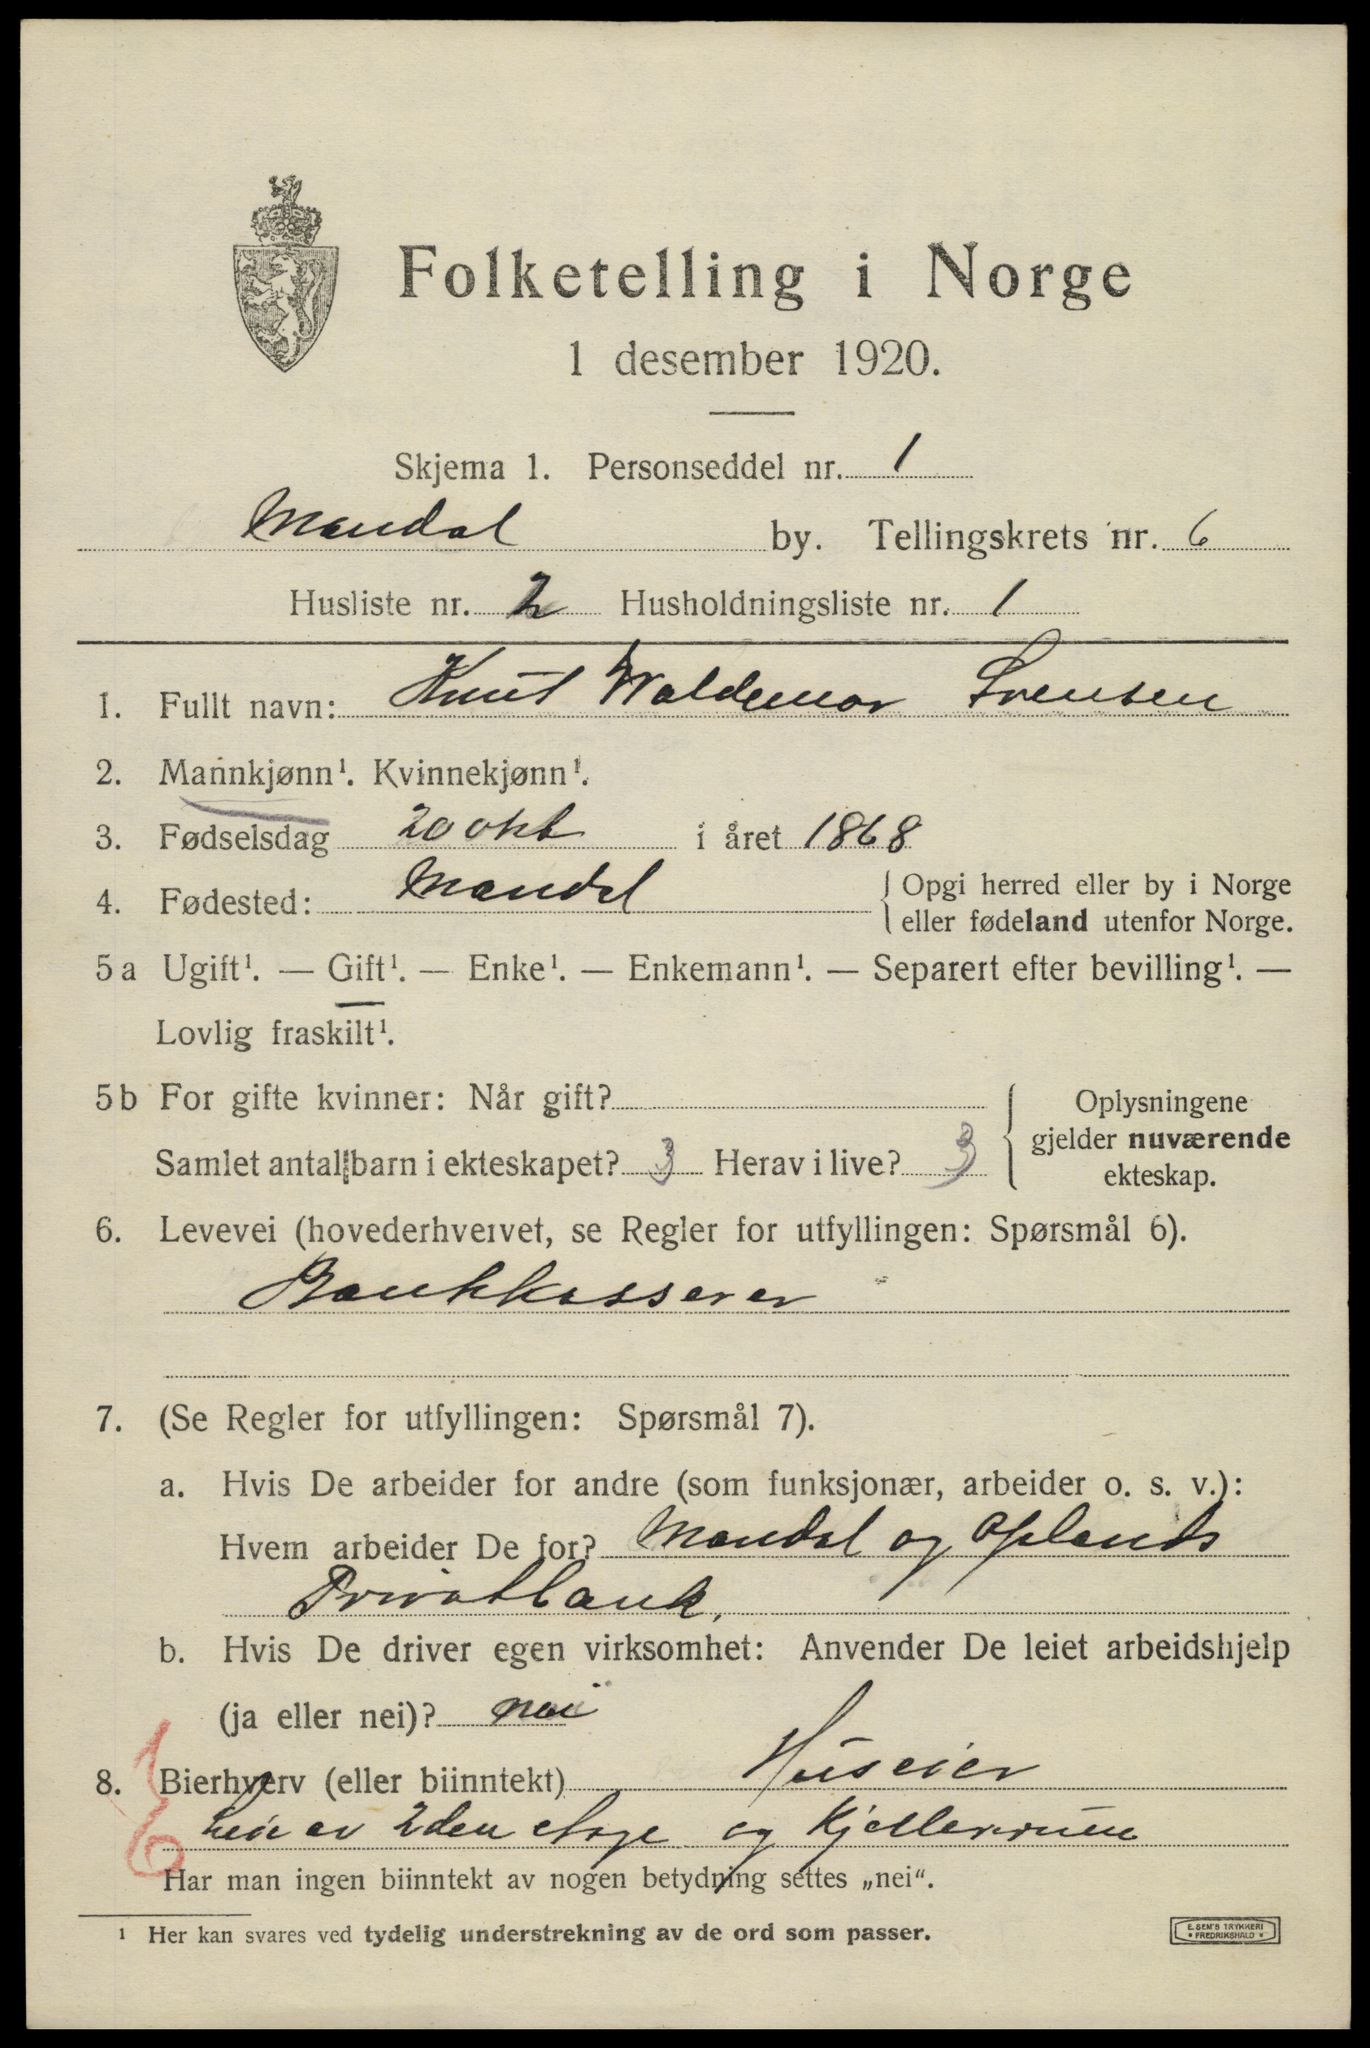 Folketelling i Norge
1 desember 1920.
Skjema 1. Personseddel nr. 1
Mandal by. Tellingskrets nr. 6
Husliste nr. 2 Husholdningsliste nr. 1
1. Fullt navn: Knut Waldemar Svensen
2. Mannkjønn¹. Kvinnekjønn¹.
3. Fødselsdag 20 okt i året 1868
4. Fødested: Mandal { Opgi herred eller by i Norge
eller fødeland utenfor Norge.
5 a Ugift¹. — Gift¹. — Enke¹. — Enkemann¹. — Separert efter bevilling¹. —
Lovlig fraskilt¹.
5 b For gifte kvinner: Når gift? { Oplysningene
gjelder nuværende
Samlet antall barn i ekteskapet? 3 Herav i live? 3
ekteskap.
6. Levevei (hovederhvervet, se Regler for utfyllingen: Spørsmål 6).
Bankkasserer
7. (Se Regler for utfyllingen: Spørsmål 7).
a. Hvis De arbeider for andre (som funksjonær, arbeider o. s. v.):
Hvem arbeider De for? Mandal og Oplands
Privatbank.
b. Hvis De driver egen virksomhet: Anvender De leiet arbeidshjelp
(ja eller nei)? nei
8. Bierhverv (eller biinntekt) Huseier
Leie av 2den etage og Kjellerrum
Har man ingen biinntekt av nogen betydning settes „nei".
¹ Her kan svares ved tydelig understrekning av de ord som passer.
E. SEM'S TRYKKERI
FREDRIKSHALD